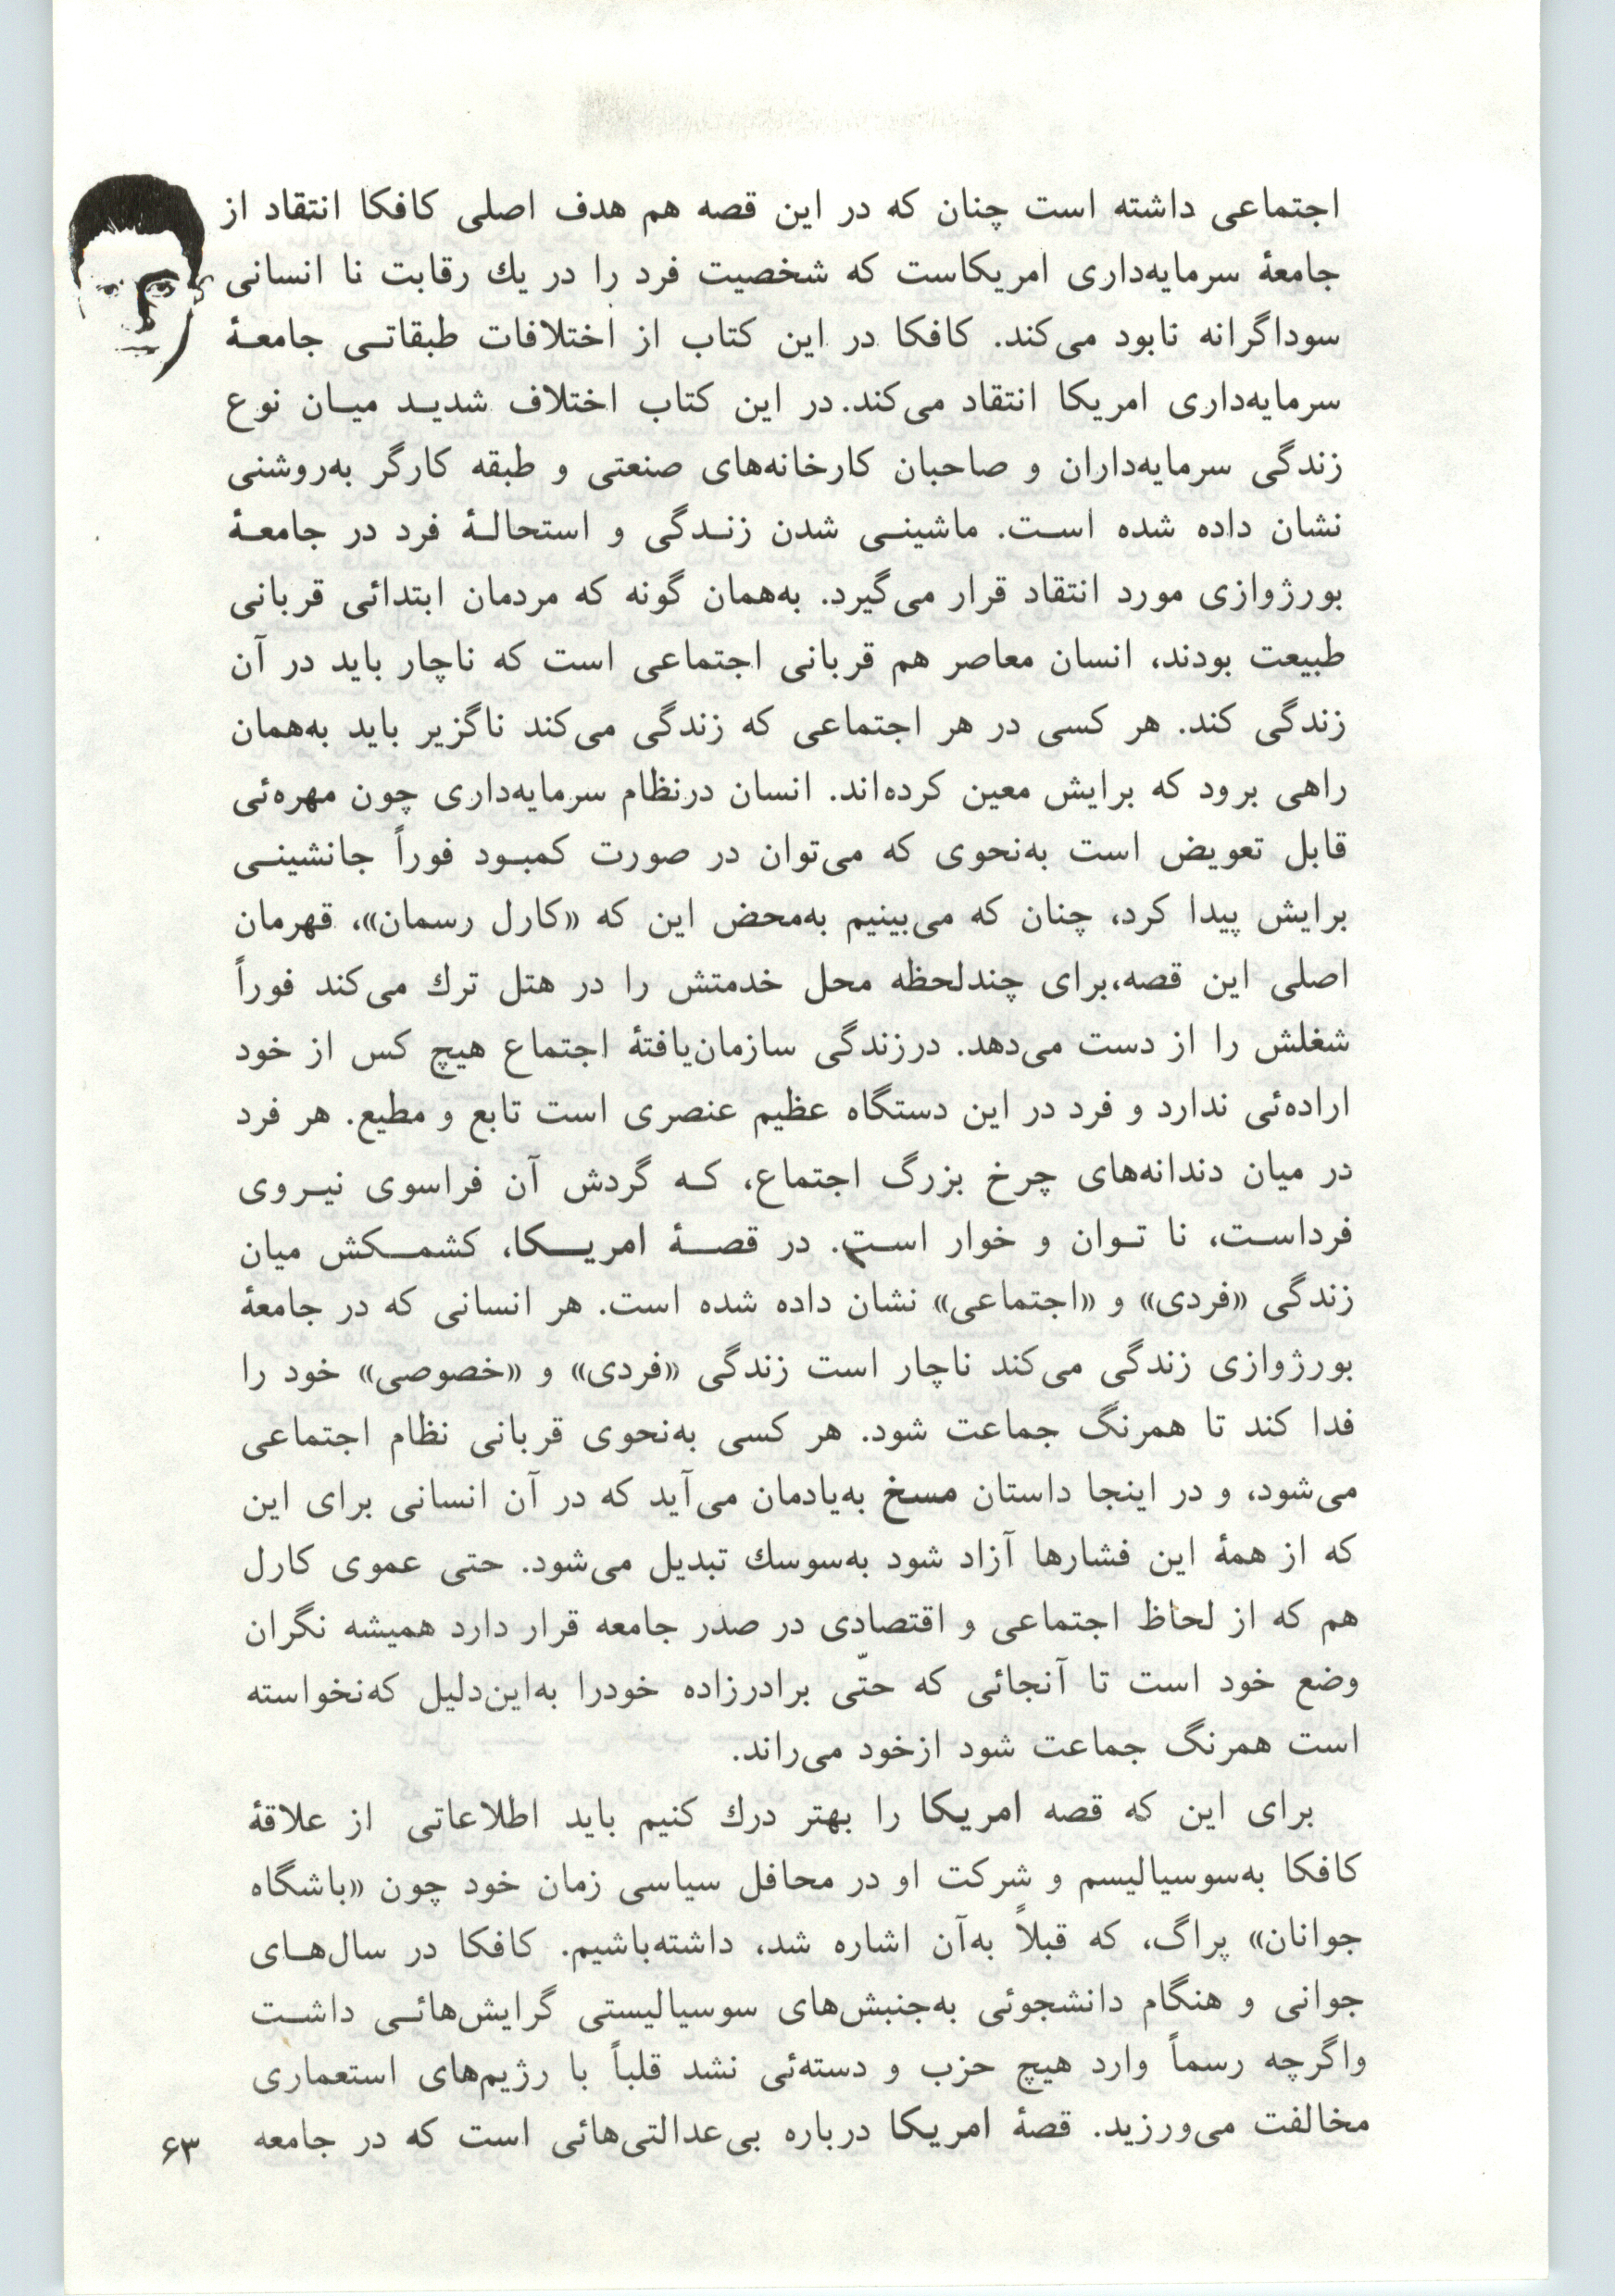 اجتماعی داشته است چنان که در این قصه هم هدف اصلی کافکا انتقاد از
جامعهٔ سرمایه‌داری امریکاست که شخصیت فرد را در یك رقابت نا انسانی
سوداگرانه نابود می‌کند. کافکا در این کتاب از اختلافات طبقاتی جامعهٔ
سرمایه‌داری امریکا انتقاد می‌کند. در این کتاب اختلاف شدید میان نوع
زندگی سرمایه‌داران و صاحبان کارخانه‌های صنعتی و طبقه کارگر به‌روشنی
نشان داده شده است. ماشینی شدن زندگی و استحالهٔ فرد در جامعهٔ
بورژوازی مورد انتقاد قرار می‌گیرد. به‌همان گونه که مردمان ابتدائی قربانی
طبیعت بودند، انسان معاصر هم قربانی اجتماعی است که ناچار باید در آن
زندگی کند. هر کسی در هر اجتماعی که زندگی می‌کند ناگزیر باید به‌همان
راهی برود که برایش معین کرده‌اند. انسان درنظام سرمایه‌داری چون مهره‌ئی
قابل تعویض است به‌نحوی که می‌توان در صورت کمبود فوراً جانشینی
برایش پیدا کرد، چنان که می‌بینیم به‌محض این که «کارل رسمان»، قهرمان
اصلی این قصه،برای چندلحظه محل خدمتش را در هتل ترك می‌کند فوراً
شغلش را از دست می‌دهد. درزندگی سازمان‌یافتهٔ اجتماع هیچ کس از خود
اراده‌ئی ندارد و فرد در این دستگاه عظیم عنصری است تابع و مطیع. هر فرد
در میان دندانه‌های چرخ بزرگ اجتماع، که گردش آن فراسوی نیروی
فرداست، نا توان و خوار است. در قصهٔ امریکا، کشمکش میان
زندگی «فردی» و «اجتماعی» نشان داده شده است. هر انسانی که در جامعهٔ
بورژوازی زندگی می‌کند ناچار است زندگی «فردی» و «خصوصی» خود را
فدا کند تا همرنگ جماعت شود. هر کسی به‌نحوی قربانی نظام اجتماعی
می‌شود، و در اینجا داستان مسخ به‌یادمان می‌آید که در آن انسانی برای این
که از همهٔ این فشارها آزاد شود به‌سوسك تبدیل می‌شود. حتی عموی کارل
هم که از لحاظ اجتماعی و اقتصادی در صدر جامعه قرار دارد همیشه نگران
وضع خود است تا آنجائی که حتّی برادرزاده خودرا به‌این‌دلیل که‌نخواسته
است همرنگ جماعت شود ازخود می‌راند.
برای این که قصه امریکا را بهتر درك کنیم باید اطلاعاتی از علاقهٔ
کافکا به‌سوسیالیسم و شرکت او در محافل سیاسی زمان خود چون «باشگاه
جوانان» پراگ، که قبلاً به‌آن اشاره شد، داشته‌باشیم. کافکا در سال‌های
جوانی و هنگام دانشجوئی به‌جنبش‌های سوسیالیستی گرایش‌هائی داشت
واگرچه رسماً وارد هیچ حزب و دسته‌ئی نشد قلباً با رژیم‌های استعماری
مخالفت می‌ورزید. قصهٔ امریکا درباره بی‌عدالتی‌هائی است که در جامعه
۶۳